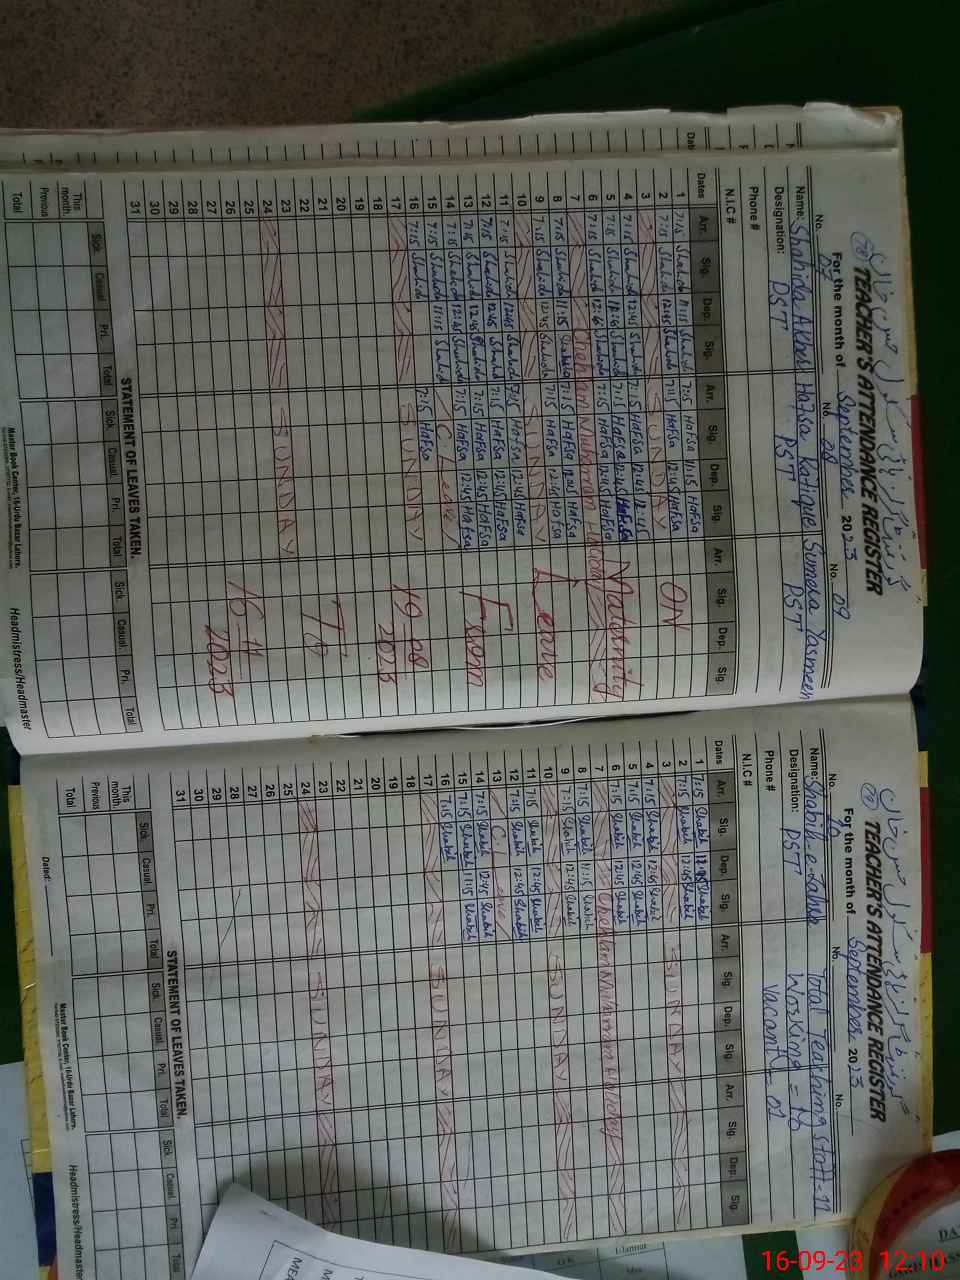 TEACHER'S ATTENDANCE REGISTER
For the month of September 2023
No. 07 No. 08 No. 09
Name: Shahida Akhter Hafsa Sumera Yasmeen
Designation: PST PST PST
Phone #
N.I.C #
Dates Arr. Sig. Dep. Sig. Arr. Sig. Dep. Sig. Arr. Sig. Dep. Sig.
1 7:15 Shahida 11:15 Shahida 7:15 HaFsa 11:15 HaFsa
2 7:15 Shahida 12:45 Shahida 7:15 HaFsa 12:45 HaFsa
3 SUNDAY
4 7:15 Shahida 12:45 Shahida 7:15 HaFsa 12:45
5 7:15 Shahida Shahida 7:15 HaFsa 12:45 HaFsa
6 7:15 Shahida 12:45 Shahida 7:15 HaFsa 12:45 HaFsa
7 Chehlam Muharram Holiday
8 7:15 Shahida 11:15 Shahida 7:15 HaFsa HaFsa
9 7:15 Shahida 12:45 Shahida 7:15 HaFsa 12:45 HaFsa
10 SUNDAY
11 7:15 Shahida 12:45 Shahida HaFsa 12:45 HaFsa
12 7:15 Shahida 12:45 Shahida 7:15 HaFsa 12:45 HaFsa
13 7:15 Shahida 12:45 Shahida 7:15 HaFsa 12:45 HaFsa
14 7:15 Shahida 12:45 Shahida 7:15 HaFsa 12:45 HaFsa
15 7:15 Shahida 11:15 Shahida C. Leave
16 7:15 Shahida 7:15 HaFsa
17 SUNDAY
18
19
20
21
22
23
24 SUNDAY
25
26
27
28
29
30
31
ON
Maternity
Leave
From
19-08
2023
To
16-11
2023
STATEMENT OF LEAVES TAKEN.
Sick. Casual. Pri. Total Sick. Casual. Pri. Total Sick. Casual. Pri. Total
This month
Previous
Total
Master Book Center, 16-Urdu Bazar Lahore.
Headmistress/Headmaster
TEACHER'S ATTENDANCE REGISTER
For the month of September 2023
No. 10 No. No.
Name: Shabih-e-Zahra Total Teaching staff = 11
Designation: PST Working = 10
Phone # Vacant = 01
N.I.C #
Dates Arr. Sig. Dep. Sig. Arr. Sig. Dep. Sig. Arr. Sig. Dep. Sig.
1 7:15 Shabih Shabih
2 7:15 Shabih 12:45 Shabih
3 SUNDAY
4 7:15 Shabih 12:45 Shabih
5 7:15 Shabih 12:45 Shabih
6 7:15 Shabih 12:45 Shabih
7 Chehlam Muharram Holiday
8 7:15 Shabih 11:15 Shabih
9 7:15 Shabih 12:45 Shabih
10 SUNDAY
11 7:15 Shabih 12:45 Shabih
12 7:15 Shabih 12:45 Shabih
13 C. Leave
14 7:15 Shabih 12:45 Shabih
15 7:15 Shabih 11:15 Shabih
16 7:15 Shabih
17 SUNDAY
18
19
20
21
22
23
24 SUNDAY
25
26
27
28
29
30
31
STATEMENT OF LEAVES TAKEN.
Sick. Casual. Pri. Total Sick. Casual. Pri. Total Sick. Casual. Pri. Total
This month
Previous
Total
Dated:
Master Book Center, 16-Urdu Bazar Lahore.
Headmistress/Headmaster
16-09-23 12:10